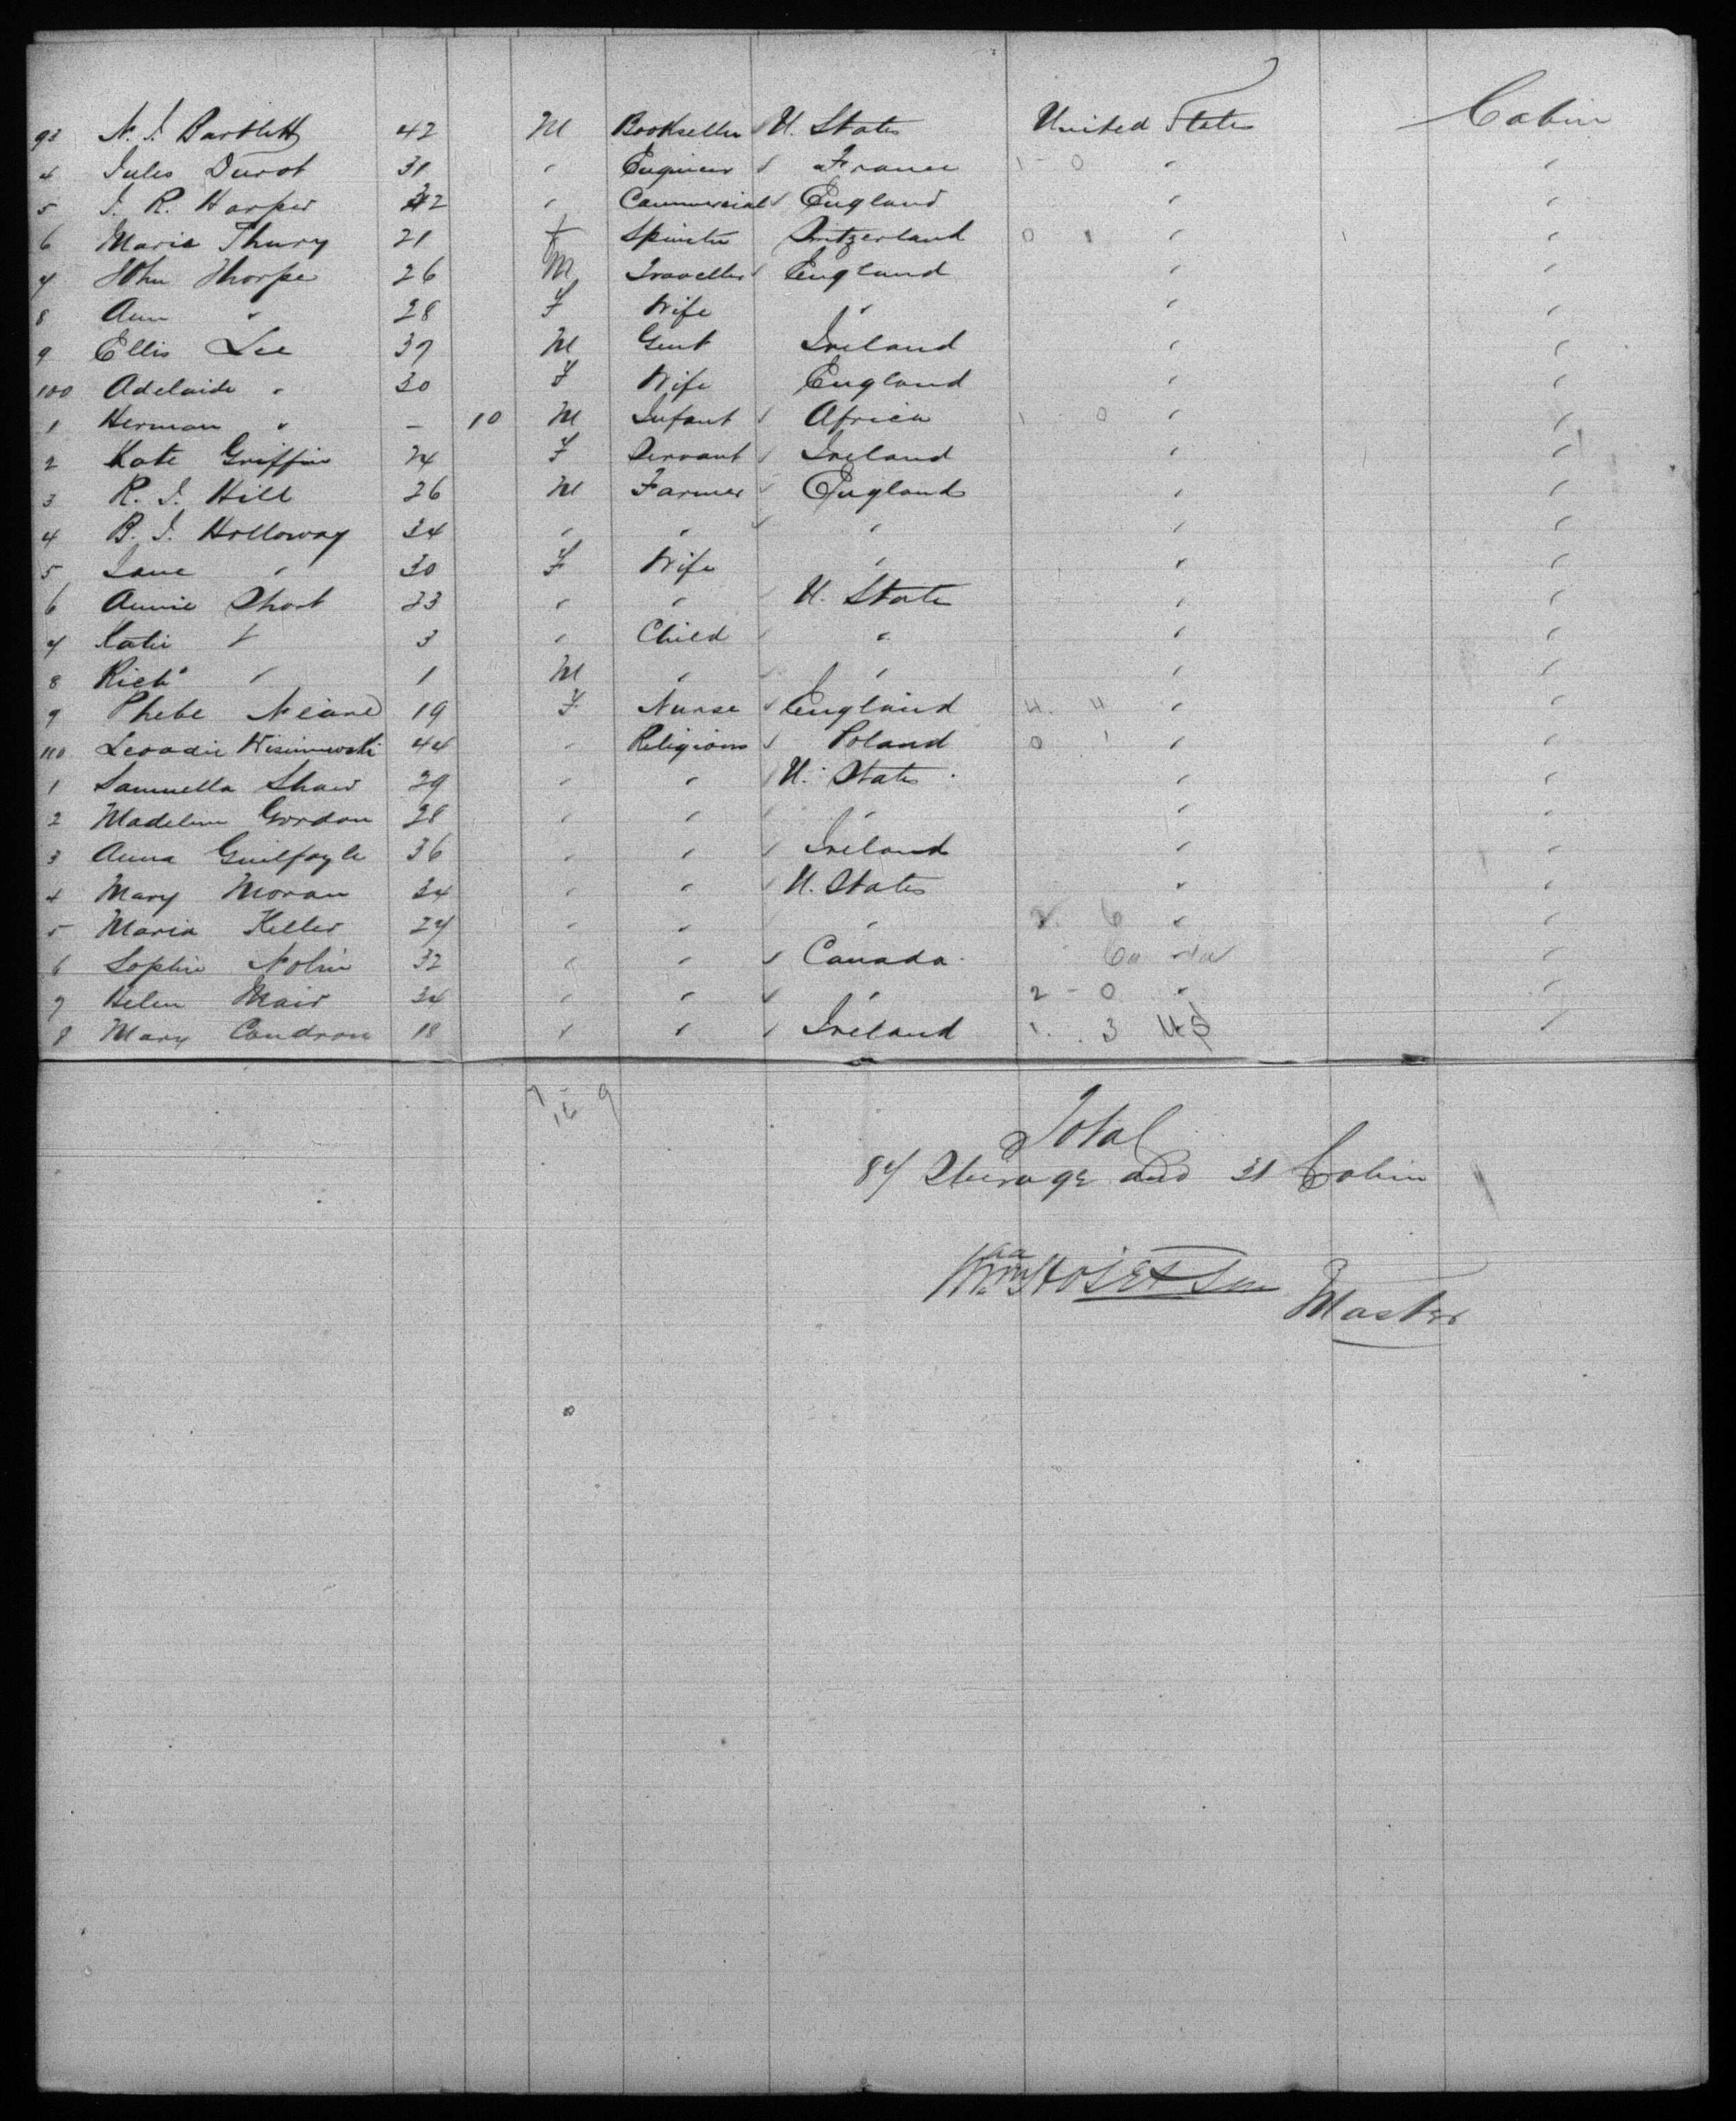 93 N. J. Bartlett 42 M Bookseller U. States United States Cabin
4 Jules Durot 31 " Engineer France 1 - 0 " "
5 J. R. Harper 32 " Commercial England " "
6 Maria Thury 21 F Spinster Switzerland 0 1 " "
7 John Thorpe 26 M Traveller England " "
8 Ann " 28 F Wife " " "
9 Ellis Lee 37 M Gent Ireland " "
100 Adelaide " 30 F Wife England " "
1 Herman " - 10 M Infant Africa 1 0 " "
2 Kate Griffin 24 F Servant Ireland " "
3 R. J. Hill 26 M Farmer England " "
4 B. J. Holloway 34 " " " " "
5 Jane " 30 F Wife " " "
6 Annie Short 23 " " U. States " "
7 Katie " 3 " Child " " "
8 Rich " 1 M " " " "
9 Phebe 19 F Nurse England 4. 4 " "
110 Leocadie 44 " Religious Poland 0 1 " "
1 Samuella Shaw 29 " " U. States " "
2 Madeline Gordon 28 " " " " "
3 Anna Guilfoyle 36 " " Ireland " "
4 Mary Moran 34 " " U. States " "
5 Maria Keller 27 " " " 2. 6 " "
6 Sophie Nolin 32 " " Canada "
7 Helen Mair 34 " " " 2 - 0 " "
8 Mary Condron 18 " " Ireland 1. 3 US "
7 - 9
16
Total
87 Steerage and 31 Cabin
Master